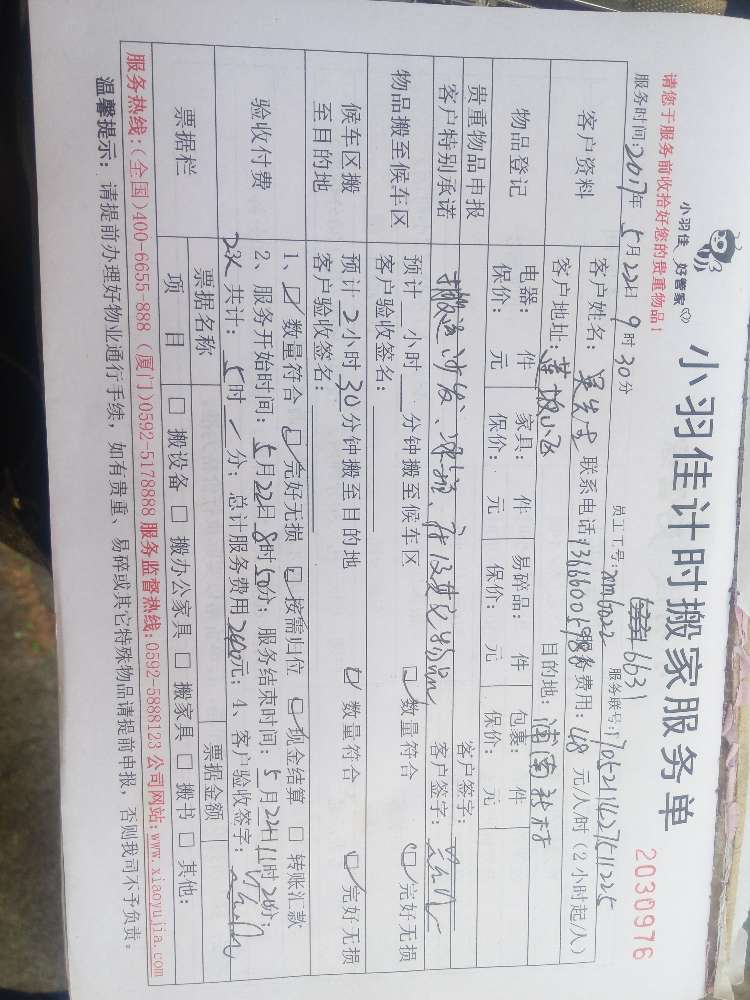 小羽佳 好管家
小羽佳计时搬家服务单
2030976
请您于服务前收拾好您的贵重物品！
6631
服务时间：2017年5月22日9时30分 员工工号： 服务联号：
客户资料
客户姓名： 联系电话： 服务费用：48元/人/时（2小时起/人）
客户地址：莲坂小区 目的地：
物品登记
电器： 件 家具： 件 易碎品： 件 包裹： 件
保价： 元 保价： 元 保价： 元 保价： 元
贵重物品申报 客户签字：
客户特别承诺 搬运沙发、 客户签字：
物品搬至候车区
预计 小时 分钟搬至候车区 数量符合 完好无损
客户验收签名：
候车区搬至目的地
预计2小时30分钟搬至目的地 数量符合 完好无损
客户验收签名：
验收付费
1、数量符合 完好无损 按需归位 现金结算 转账汇款
2、服务开始时间：5月22日8时50分；服务结束时间：5月22日11时20分；
2人共计：5时/分；总计服务费用240元；4、客户验收签字：
票据栏
票据名称 票据金额
项目 搬设备 搬办公家具 搬家具 搬书 其他：
服务热线：(全国)400-6655-888（厦门)0592-5178888 服务监督热线：0592-5888123 公司网站：www.xiaoyujia.com
温馨提示：请提前办理好物业通行手续，如有贵重、易碎或其它特殊物品请提前申报，否则我司不予负责。